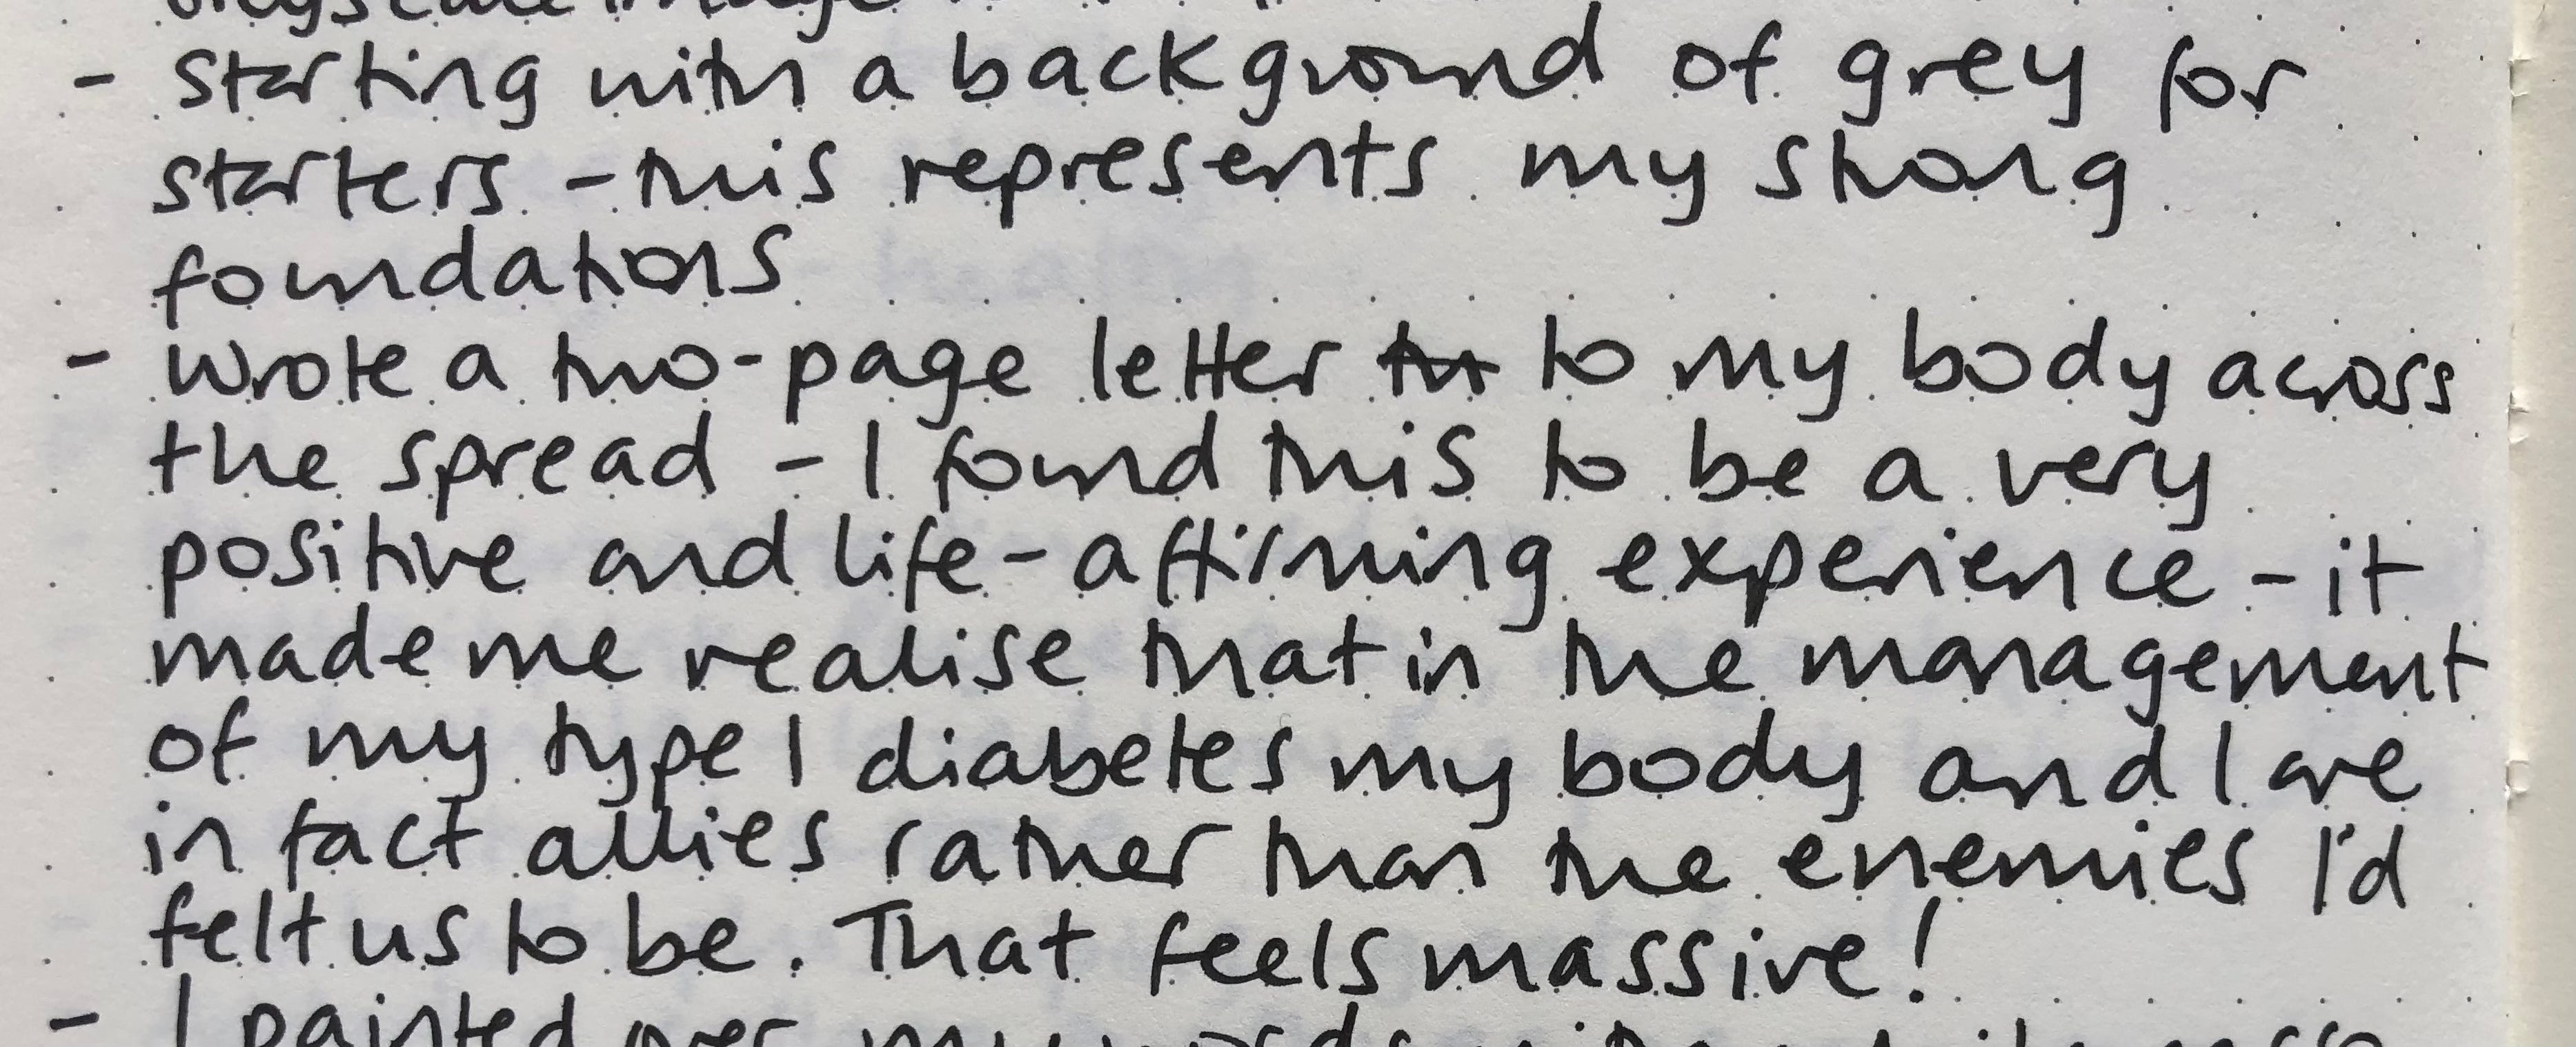 greyscale image
- starting with a background of grey for
starters - this represents my strong
foundations
- wrote a two-page letter to my body across
the spread - I found this to be a very
positive and life-affirming experience - it
made me realise that in the management
of my type 1 diabetes my body and I are
in fact allies rather than the enemies I'd
felt us to be. That feels massive!
- I painted over my words with white gesso